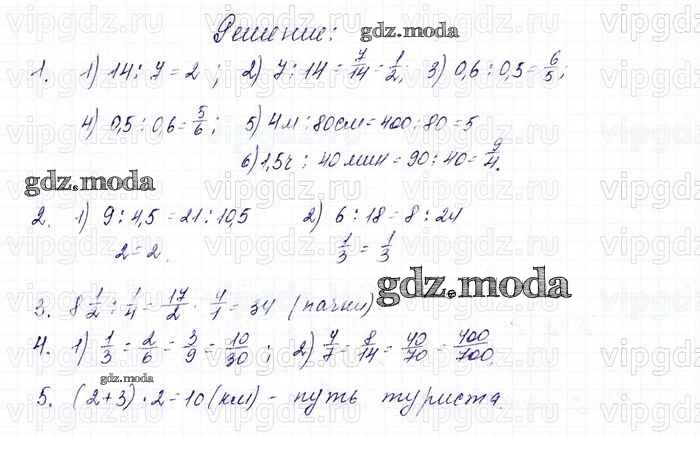 Решение:
gdz.moda
1. 1) 14 : 7 = 2 ; 2) 7 : 14 = 7/14 = 1/2; 3) 0,6 : 0,5 = 6/5;
4) 0,5 : 0,6 = 5/6; 5) 4м : 80см = 400 : 80 = 5
6) 1,5ч : 40 мин = 90 : 40 = 9/4.
gdz.moda
2. 1) 9 : 4,5 = 21 : 10,5 2) 6 : 18 = 8 : 24
2 = 2. 1/3 = 1/3
gdz.moda
3. 8 1/2 : 1/4 = 17/2 · 4/1 = 34 (пачки)
4. 1) 1/3 = 2/6 = 3/9 = 10/30 ; 2) 4/7 = 8/14 = 40/70 = 400/700.
gdz.moda
5. (2+3) · 2 = 10 (км) - путь туриста.
vipgdz.ru